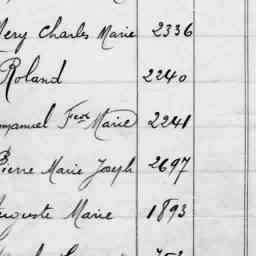 Mery Charles Marie 2336
Roland 2240
Emmanuel Fcois Marie 2241
Pierre Marie Joseph 2697
Auguste Marie 1893